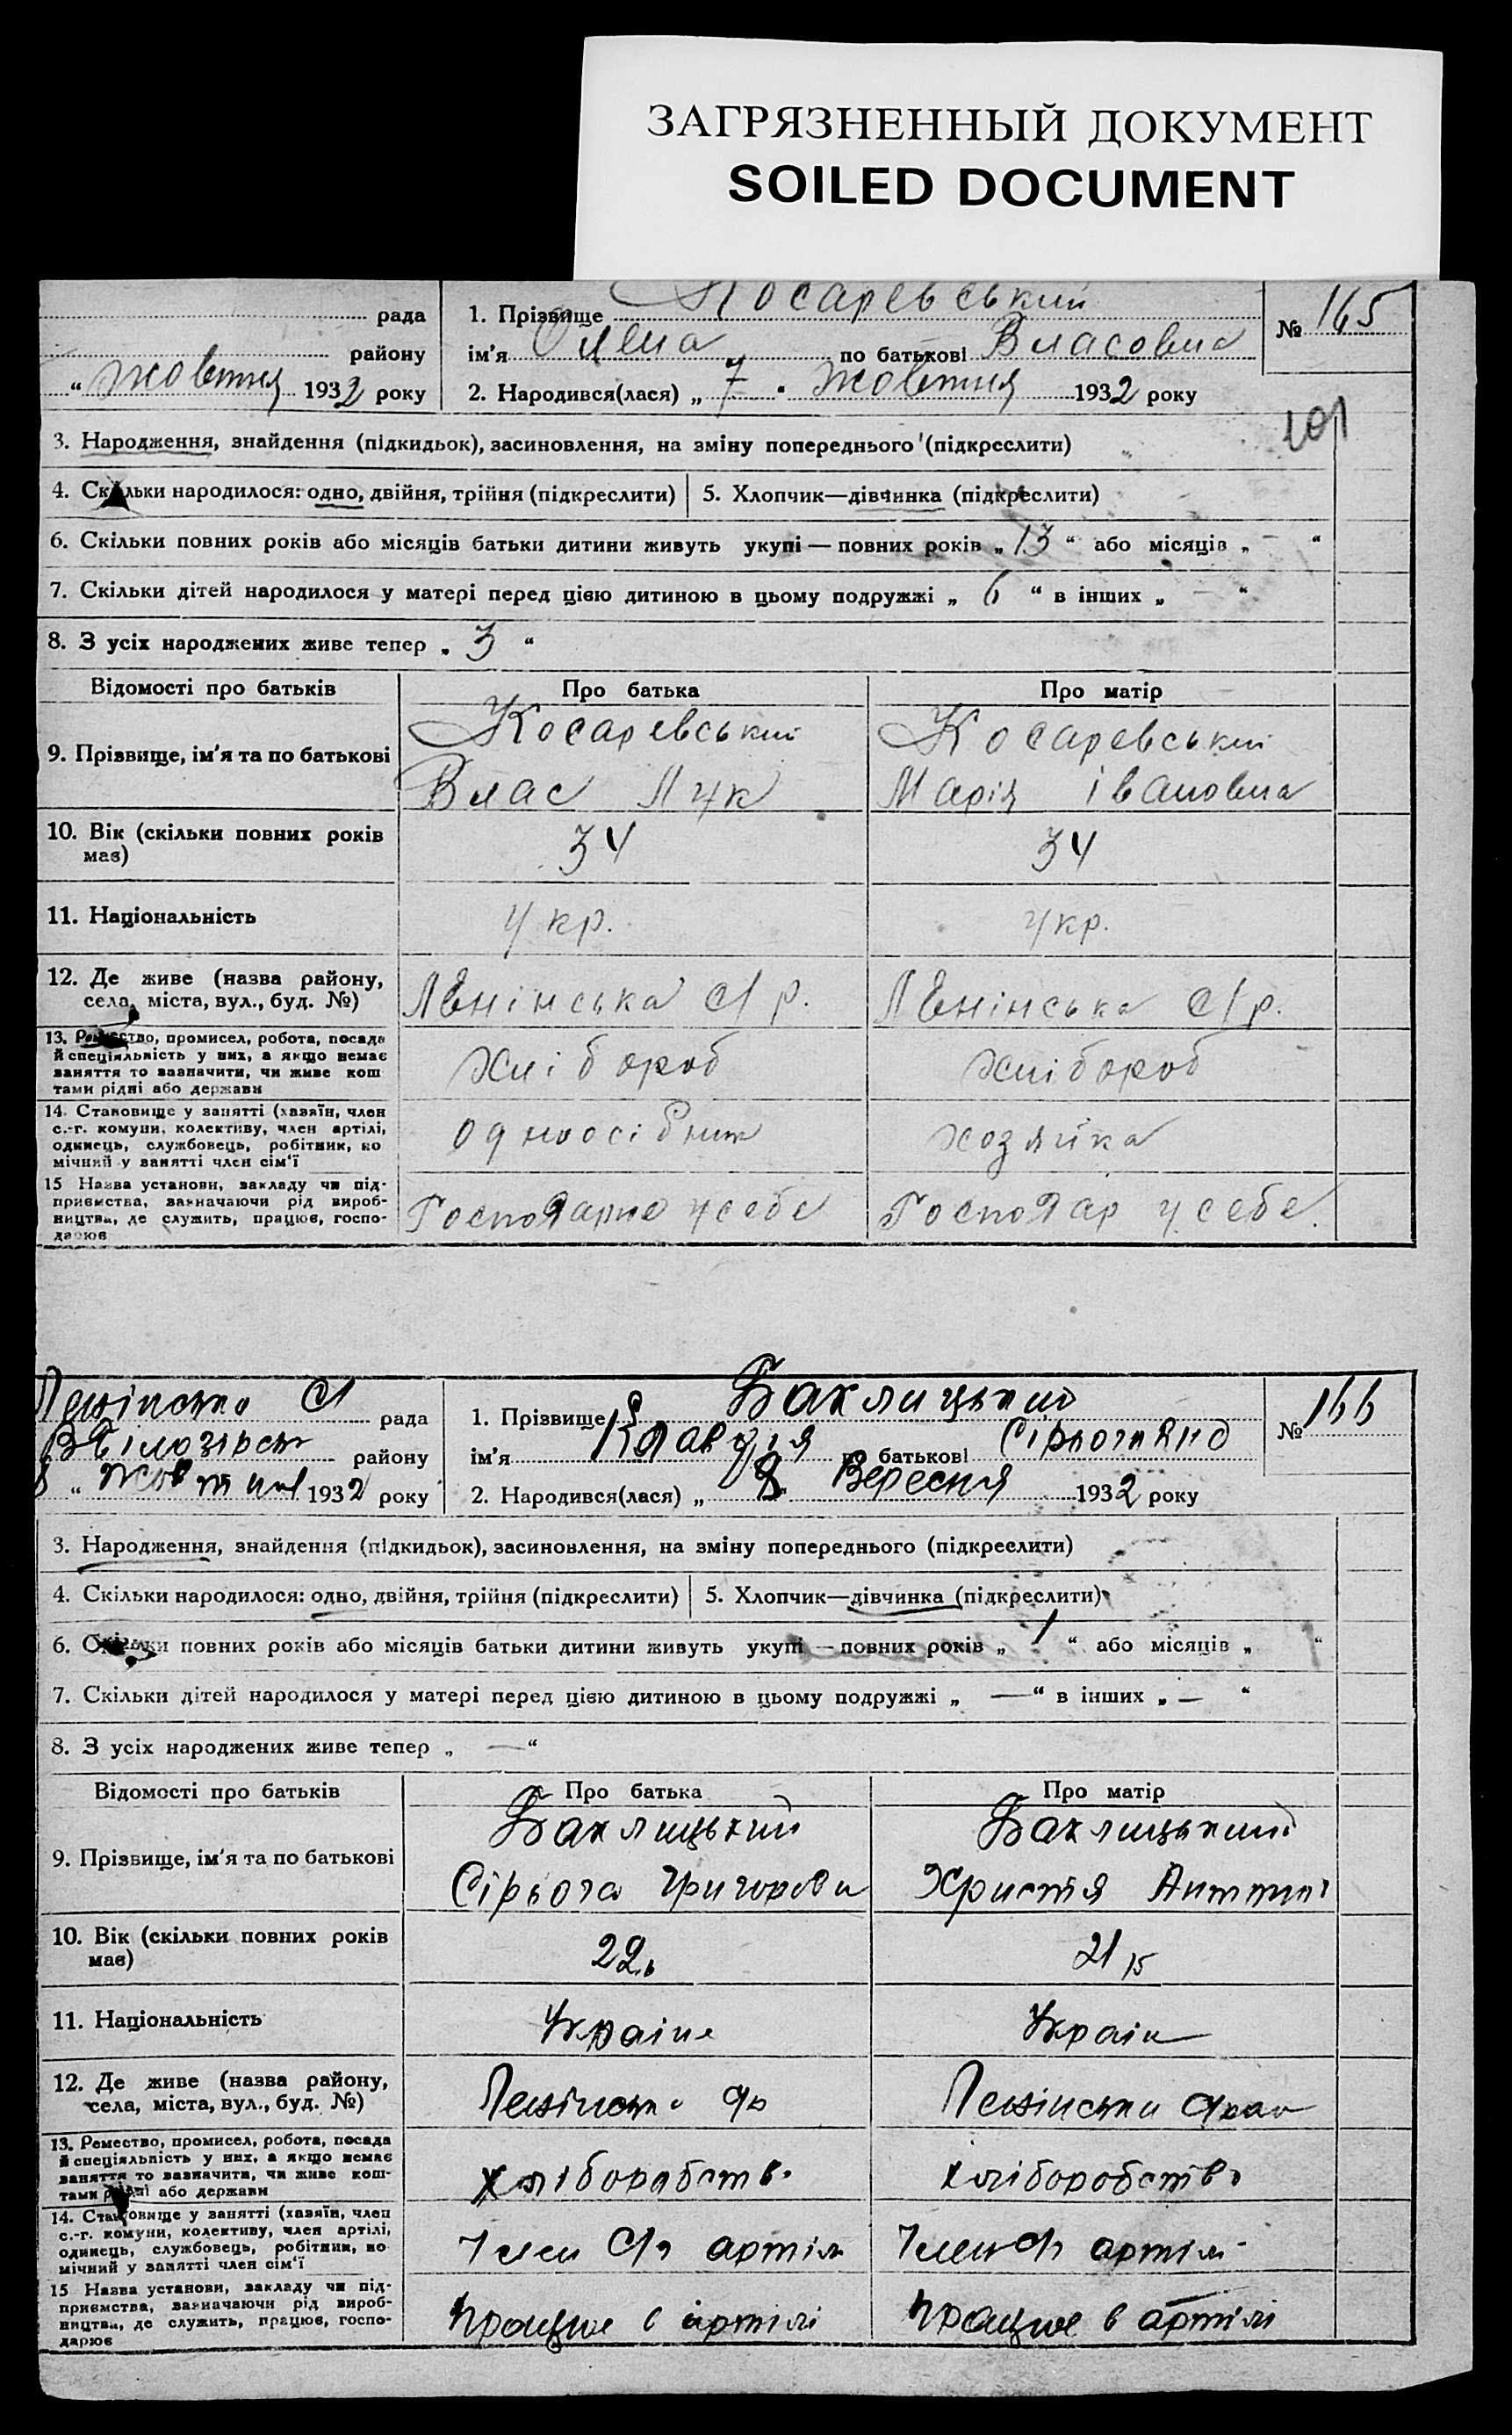 ЗАГРЯЗНЕННЫЙ ДОКУМЕНТ
SOILED DOCUMENT
рада
району
“ жовтня 1932 року
1. Прізвище Косаревський
ім'я Олена по батькові Власовна
2. Народився(лася) „ 7 “ жовтня 1932 року
№ 165
101
3. Народження, знайдення (підкидьок), засиновлення, на зміну попереднього (підкреслити)
4. Скільки народилося: одно, двійня, трійня (підкреслити)
5. Хлопчик—дівчинка (підкреслити)
6. Скільки повних років або місяців батьки дитини живуть укупі — повних років „ 13 “ або місяців „ — “
7. Скільки дітей народилося у матері перед цією дитиною в цьому подружжі „ 6 “ в інших „ — “
8. З усіх народжених живе тепер „ 3 “
Відомості про батьків
Про батька
Про матір
9. Прізвище, ім'я та по батькові
Косаревський
Влас Лук
Косаревський
Марія Івановна
10. Вік (скільки повних років
має)
34
34
11. Національність
укр.
укр.
12. Де живе (назва району,
села, міста, вул., буд. №)
Ленінська с/р.
Ленінська с/р.
13. Ремество, промисел, робота, посада
й спеціяльність у них, а якщо немає
заняття то зазначити, чи живе кош
тами рідні або держави
хлібороб
хлібороб
14. Становище у занятті (хазяїн, член
с.-г. комуни, колективу, член артілі,
одинець, службовець, робітник, по
мічний у занятті член сім'ї
одноосібник
хозяйка
15 Назва установи, закладу чи під-
приємства, зазначаючи рід вироб-
ництва, де служить, працює, госпо-
дарює
Господарює у себе
Господар у себе.
Ленінська С/ рада
Білозірськ району
8 “ Жовтня 1932 року
1. Прізвище Баклицький
ім'я Клавдія по батькові Сірьогивно
2. Народився(лася) „ 8 “ Вересня 1932 року
№ 166
3. Народження, знайдення (підкидьок), засиновлення, на зміну попереднього (підкреслити)
4. Скільки народилося: одно, двійня, трійня (підкреслити)
5. Хлопчик—дівчинка (підкреслити)
6. Скільки повних років або місяців батьки дитини живуть укупі — повних років „ 1 “ або місяців „ “
7. Скільки дітей народилося у матері перед цією дитиною в цьому подружжі „ — “ в інших „ — “
8. З усіх народжених живе тепер „ — “
Відомості про батьків
Про батька
Про матір
9. Прізвище, ім'я та по батькові
Баклицький
Сірьога Григорови
Баклицький
Христя
10. Вік (скільки повних років
має)
22
21
11. Національність
Україне
Україн
12. Де живе (назва району,
села, міста, вул., буд. №)
Ленінська
Ленінська
13. Ремество, промисел, робота, посада
й спеціяльність у них, а якщо немає
заняття то зазначити, чи живе кош-
тами рідні або держави
хліборобств.
хліборобств.
14. Становище у занятті (хазяїн, член
с.-г. комуни, колективу, член артілі,
одинець, службовець, робітник, по
мічний у занятті член сім'ї
Член С/г артіли
Член С/г артіли
15 Назва установи, закладу чи під-
приємства, зазначаючи рід вироб-
ництва, де служить, працює, госпо-
дарює
працює в артілі
працює в артілі